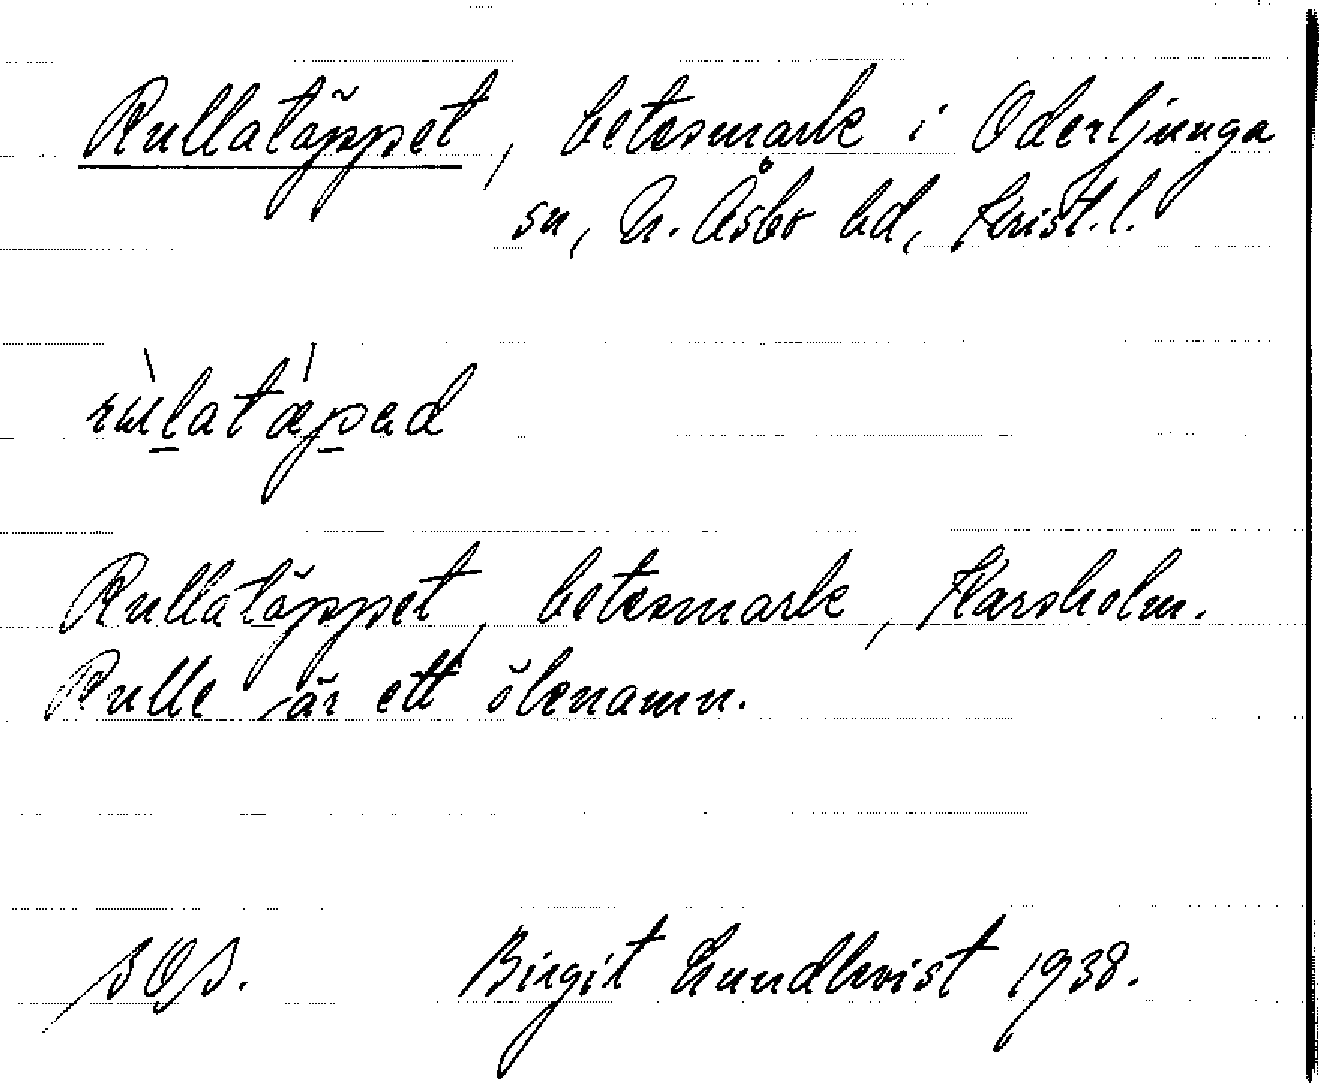 Rullatäppet, betesmark i Oderljunga
sn, N. Åsbo hd, Krist.l.
rulatæpad
Rullatäppet, betesmark, Karsholm.
Rulle är ett öknamn.
Birgit Lundkvist 1938.